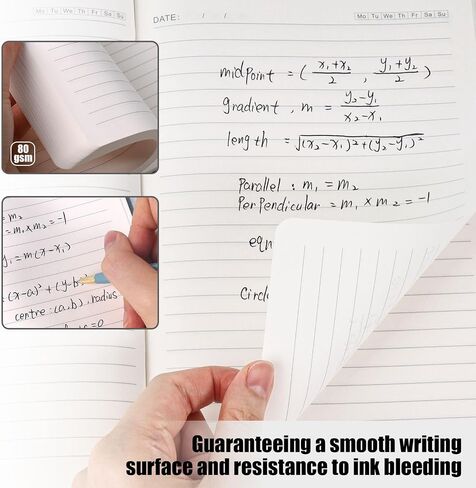 DATE: / /
Mo Tu We Th Fr Sa Su
Mo Tu We Th Fr Sa Su
midpoint = ( x₁+x₂ / 2 , y₁+y₂ / 2 )
gradient, m = y₂-y₁ / x₂-x₁
length = √(x₂-x₁)²+(y₂-y₁)²
Parallel : m₁ = m₂
Perpendicular = m₁ × m₂ = -1
eqn
Circl
80
gsm
= m₂
= m₁ × m₂ = -1
y₁ = m(x-x₁)
(x-a)² + (y-b)²
centre : (a,b), radius
=0
Guaranteeing a smooth writing
surface and resistance to ink bleeding